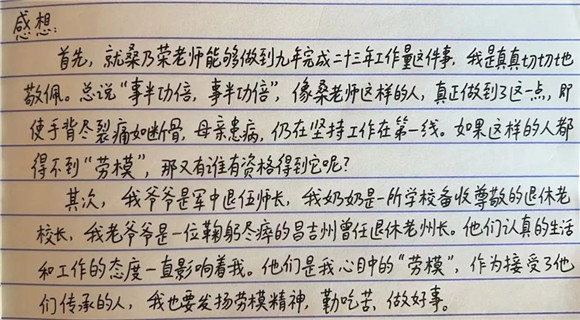 感想:
首先，就桑乃荣老师能够做到九年完成二十三年工作量这件事，我是真真切切地
敬佩。总说“事半功倍，事半功倍”，像桑老师这样的人，真正做到了这一点，即
使手背尽裂痛如断骨，母亲患病，仍在坚持工作在第一线。如果这样的人都
得不到“劳模”，那又有谁有资格得到它呢？
其次，我爷爷是军中退伍师长，我奶奶是一所学校备收尊敬的退休老
校长，我老爷爷是一位鞠躬尽瘁的昌吉州曾任退休老州长。他们认真的生活
和工作的态度一直影响着我。他们是我心目中的“劳模”，作为接受了他
们传承的人，我也要发扬劳模精神，勤吃苦，做好事。